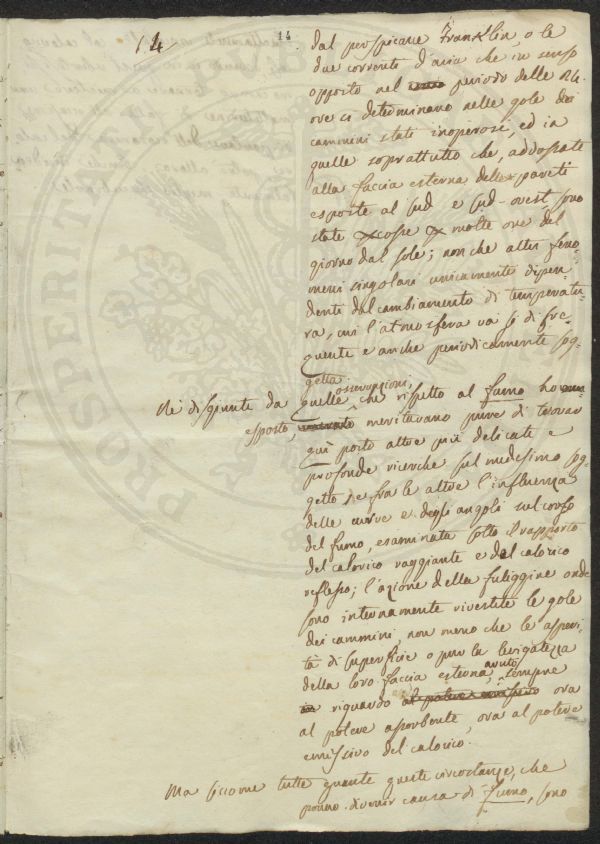 14
14
dal perspicace Franklin, o le
due correnti d'aria che in senso
opposto nel periodo delle 24.
ore si determinano nelle gole dei
cammini stati inoperosi, ed in
quelle soprattutto che, addossate
alla faccia esterna delle pareti
esposte al sud e sud-ovest sono
state scosse molte ore del
giorno dal sole; non che altri feno-
meni singolari unicamente dipen-
denti dal cambiamento di temperatu-
ra, cui l'atmosfera va sì di fre-
quente e anche periodicamente sog-
getta.
osservazioni,
Nè disgiunte da quelle che rispetto al fumo ho
esposto, meritavano pure di trovar
quì posto altre più delicate e
profonde ricerche sul medesimo sog-
getto; e fra le altre l'influenza
delle curve e degli angoli sul corso
del fumo, esaminata sotto il rapporto
del calorico raggiante e del calorico
riflesso; l'azione della fuliggine onde
sono internamente rivestite le gole
dei cammini, non meno che le asperi-
tà di superficie o pure la levigatezza
della loro faccia esterna, avuto sempre
riguardo al potere emissivo ora
al potere assorbente, ora al potere
emissivo del calorico.
Ma siccome tutte quante queste circostanze, che
ponno divenir causa di fumo, sono
PROSPERITÀ